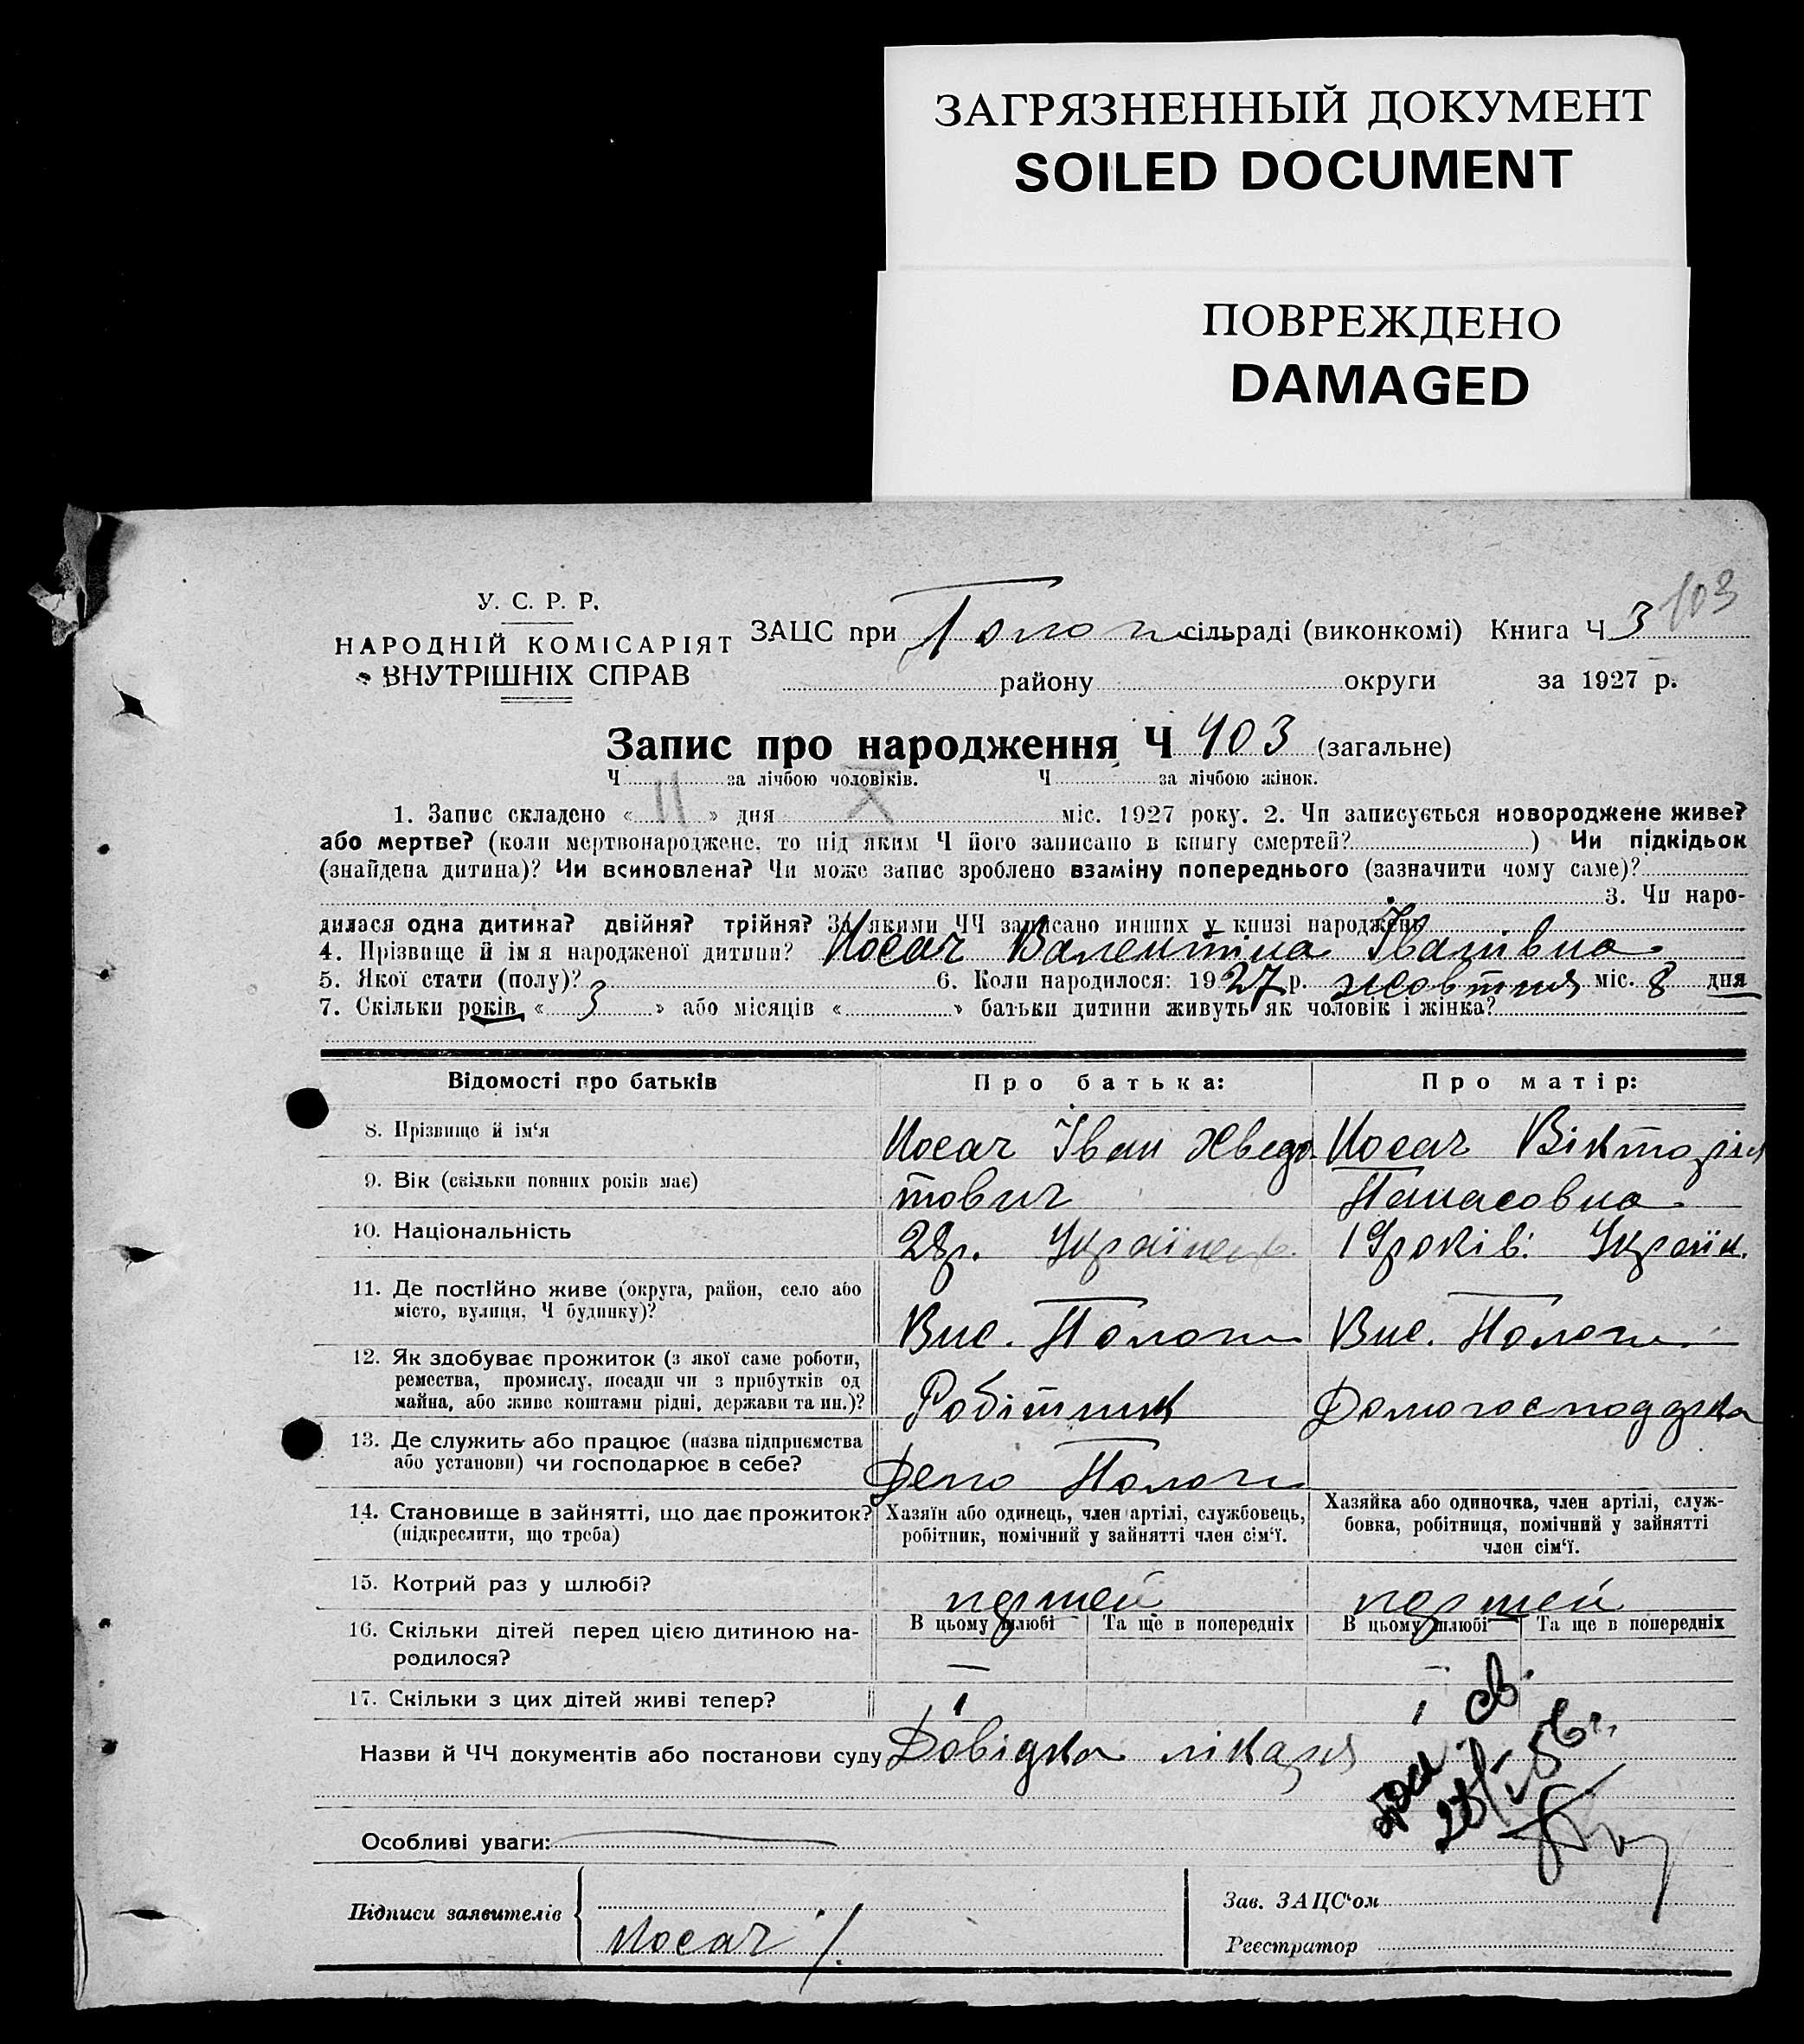 ЗАГРЯЗНЕННЫЙ ДОКУМЕНТ
SOILED DOCUMENT
ПОВРЕЖДЕНО
DAMAGED
103
У. С. Р. Р.
НАРОДНІЙ КОМІСАРІЯТ
ВНУТРІШНІХ СПРАВ
ЗАЦС при Пологи сільраді (виконкомі) Книга Ч 3
району округи за 1927 р.
Запис про народження Ч 403 (загальне)
Ч за лічбою чоловіків. Ч за лічбою жінок.
1. Запис складено « 11 » дня X міс. 1927 року. 2. Чи записується новороджене живе?
або мертве? (коли мертвонароджене, то під яким Ч його записано в книгу смертей? ) Чи підкідьок
(знайдена дитина)? Чи всиновлена? Чи може запис зроблено взаміну попереднього (зазначити чому саме)?
3. Чи наро-
дилася одна дитина? двійня? трійня? За якими ЧЧ записано инших у книзі народжень
4. Прізвище й ім я народженої дитини? Носач Валентіна Іванівна
5. Якої стати (полу)? 6. Коли народилося: 1927 р. жовтня міс. 8 дня
7. Скільки років « 3 » або місяців « » батьки дитини живуть як чоловік і жінка?
Відомості про батьків Про батька: Про матір:
8. Прізвище й ім‘я Носач Іван Хведо Носач Вікторія
9. Вік (скільки повних років має) тович Панасовна
10. Національність 28р. Українець 19 років. Україн.
11. Де постійно живе (округа, район, село або
місто, вулиця, Ч будинку)? Вис. Пологи Вис. Пологи
12. Як здобуває прожиток (з якої саме роботи,
ремества, промислу, посади чи з прибутків од
майна, або живе коштами рідні, держави та ин.)? Робітник Домогосподарка
13. Де служить або працює (назва підприємства
або установи) чи господарює в себе? Депо Пологи
14. Становище в зайнятті, що дає прожиток?
(підкреслити, що треба)
Хазяїн або одинець, член артілі, службовець,
робітник, помічний у зайнятті член сім‘ї.
Хазяйка або одиночка, член артілі, служ-
бовка, робітниця, помічний у зайнятті
член сім‘ї.
15. Котрий раз у шлюбі? першей першей
16. Скільки дітей перед цією дитиною на-
родилося?
В цьому шлюбі Та ще в попередніх В цьому шлюбі Та ще в попередніх
— —
17. Скільки з цих дітей живі тепер? 1 1
Назви й ЧЧ документів або постанови суду Довідка лікаря
Особливі уваги:
Підписи заявителів Носач
Зав. ЗАЦС‘ом
Реєстратор